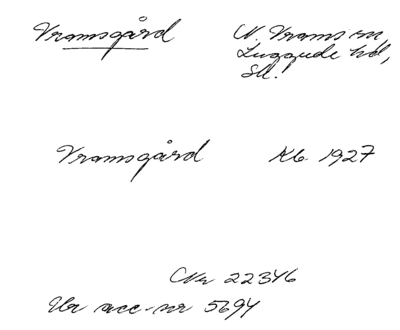 Vramsgård N. Vrams sn,
Luggude hd,
Sk.
Vramsgård Kb. 1927
CNr 22346
Ur acc-nr 5694